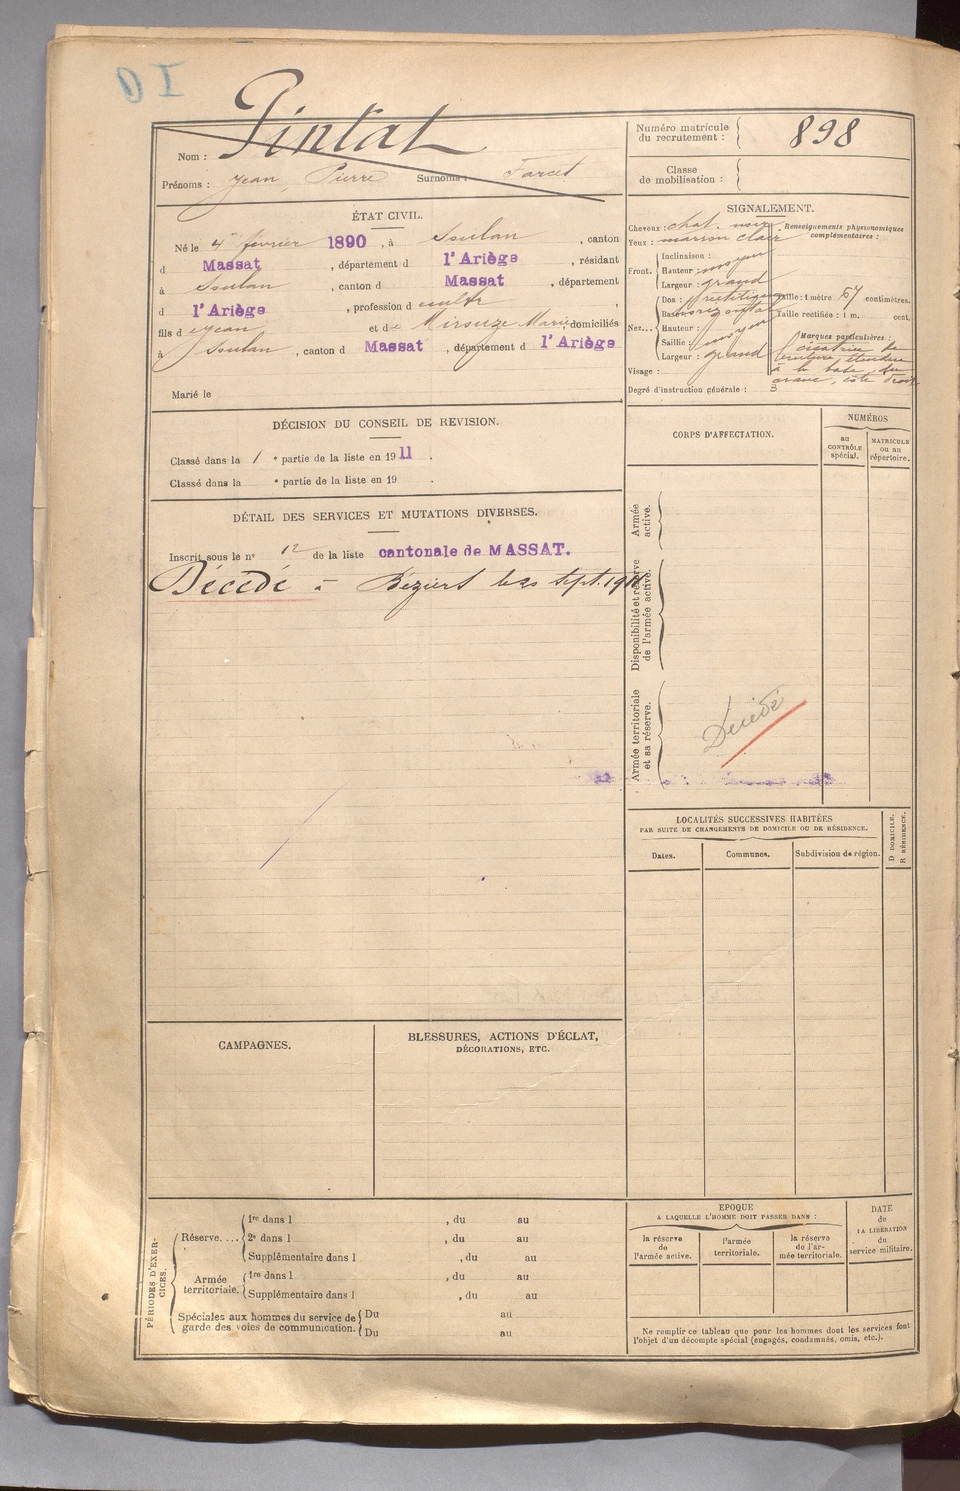 Pintat
Nom :
Prénoms : Jean, Pierre Surnoms : Farcet
Numéro matricule
du recrutement : 898
Classe
de mobilisation :
ÉTAT CIVIL.
Né le 4 février 1890, à Soulan, canton
d Massat, département d l'Ariège, résidant
à Soulan, canton d Massat, département
d l'Ariège, profession d cultr,
fils d Jean et de Mirouze Marie domiciliés
à Soulan, canton d Massat, département d l'Ariège
Marié le
SIGNALEMENT.
Cheveux : chat. noir
Yeux : marron clair
Renseignements physionomiques
complémentaires :
Front. Inclinaison : moyen
Hauteur :
Largeur : grand
Nez... Dos : rectiligne
Base : horizontal
Hauteur :
Saillie : moyen
Largeur : grand
Taille : 1 mètre 67 centimètres.
Taille rectifiée : 1 m. cent.
Marques particulières :
cicatrice de
étendue
à la base du
crane, côté droit
Visage :
Degré d'instruction générale : 3
DÉCISION DU CONSEIL DE REVISION.
Classé dans la 1 e partie de la liste en 1911.
Classé dans la e partie de la liste en 19 .
DÉTAIL DES SERVICES ET MUTATIONS DIVERSES.
Inscrit sous le no 12 de la liste cantonale de MASSAT.
Décédé à Béziers le 20 Sept. 1911
CORPS D'AFFECTATION.
NUMÉROS
au
CONTRÔLE
spécial.
MATRICULE
ou au
répertoire.
Armée
active.
Disponibilité et réserve
de l'armée active.
Armée territoriale
et sa réserve.
Décédé
LOCALITÉS SUCCESSIVES HABITÉES
PAR SUITE DE CHANGEMENTS DE DOMICILE OU DE RÉSIDENCE.
Dates.
Communes.
Subdivision de région.
D DOMICILE.
R RÉSIDENCE.
CAMPAGNES.
BLESSURES, ACTIONS D'ÉCLAT,
DÉCORATIONS, ETC.
PÉRIODES D'EXER-
CICES.
Réserve.... 1re dans l , du au
2e dans l , du au
Supplémentaire dans l , du au
Armée
territoriale. 1re dans l , du au
Supplémentaire dans l , du au
Spéciales aux hommes du service de
garde des voies de communication. Du au
Du au
EPOQUE
A LAQUELLE L'HOMME DOIT PASSER DANS :
la réserve
de
l'armée active.
l'armée
territoriale.
la réserve
de l'ar-
mée territoriale.
DATE
de
LA LIBÉRATION
du
service militaire.
Ne remplir ce tableau que pour les hommes dont les services font
l'objet d'un décompte spécial (engagés, condamnés, omis, etc.).